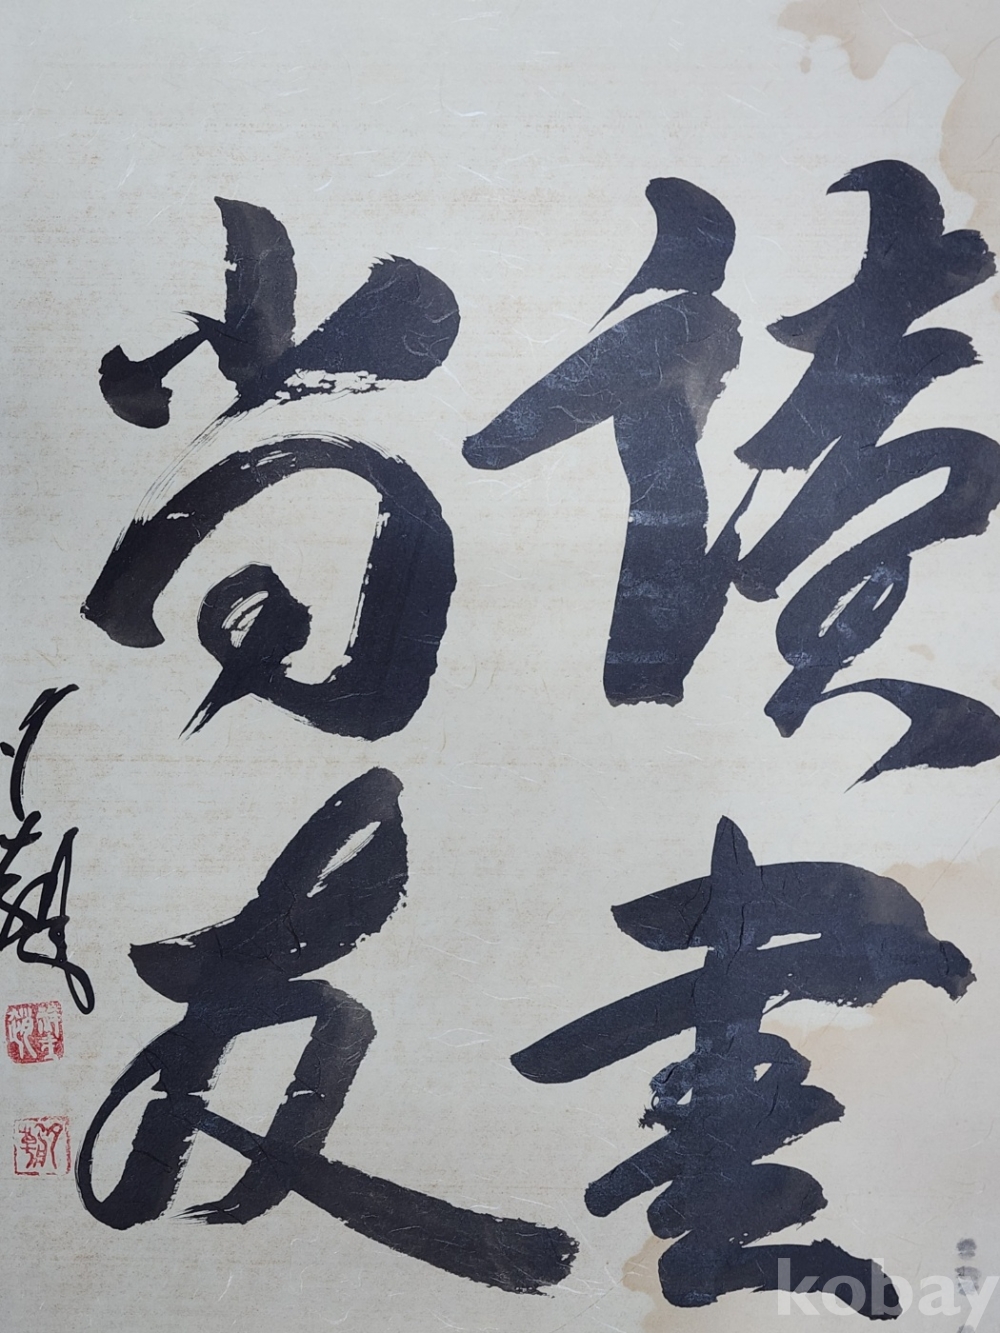 讀書
尚友
kobay